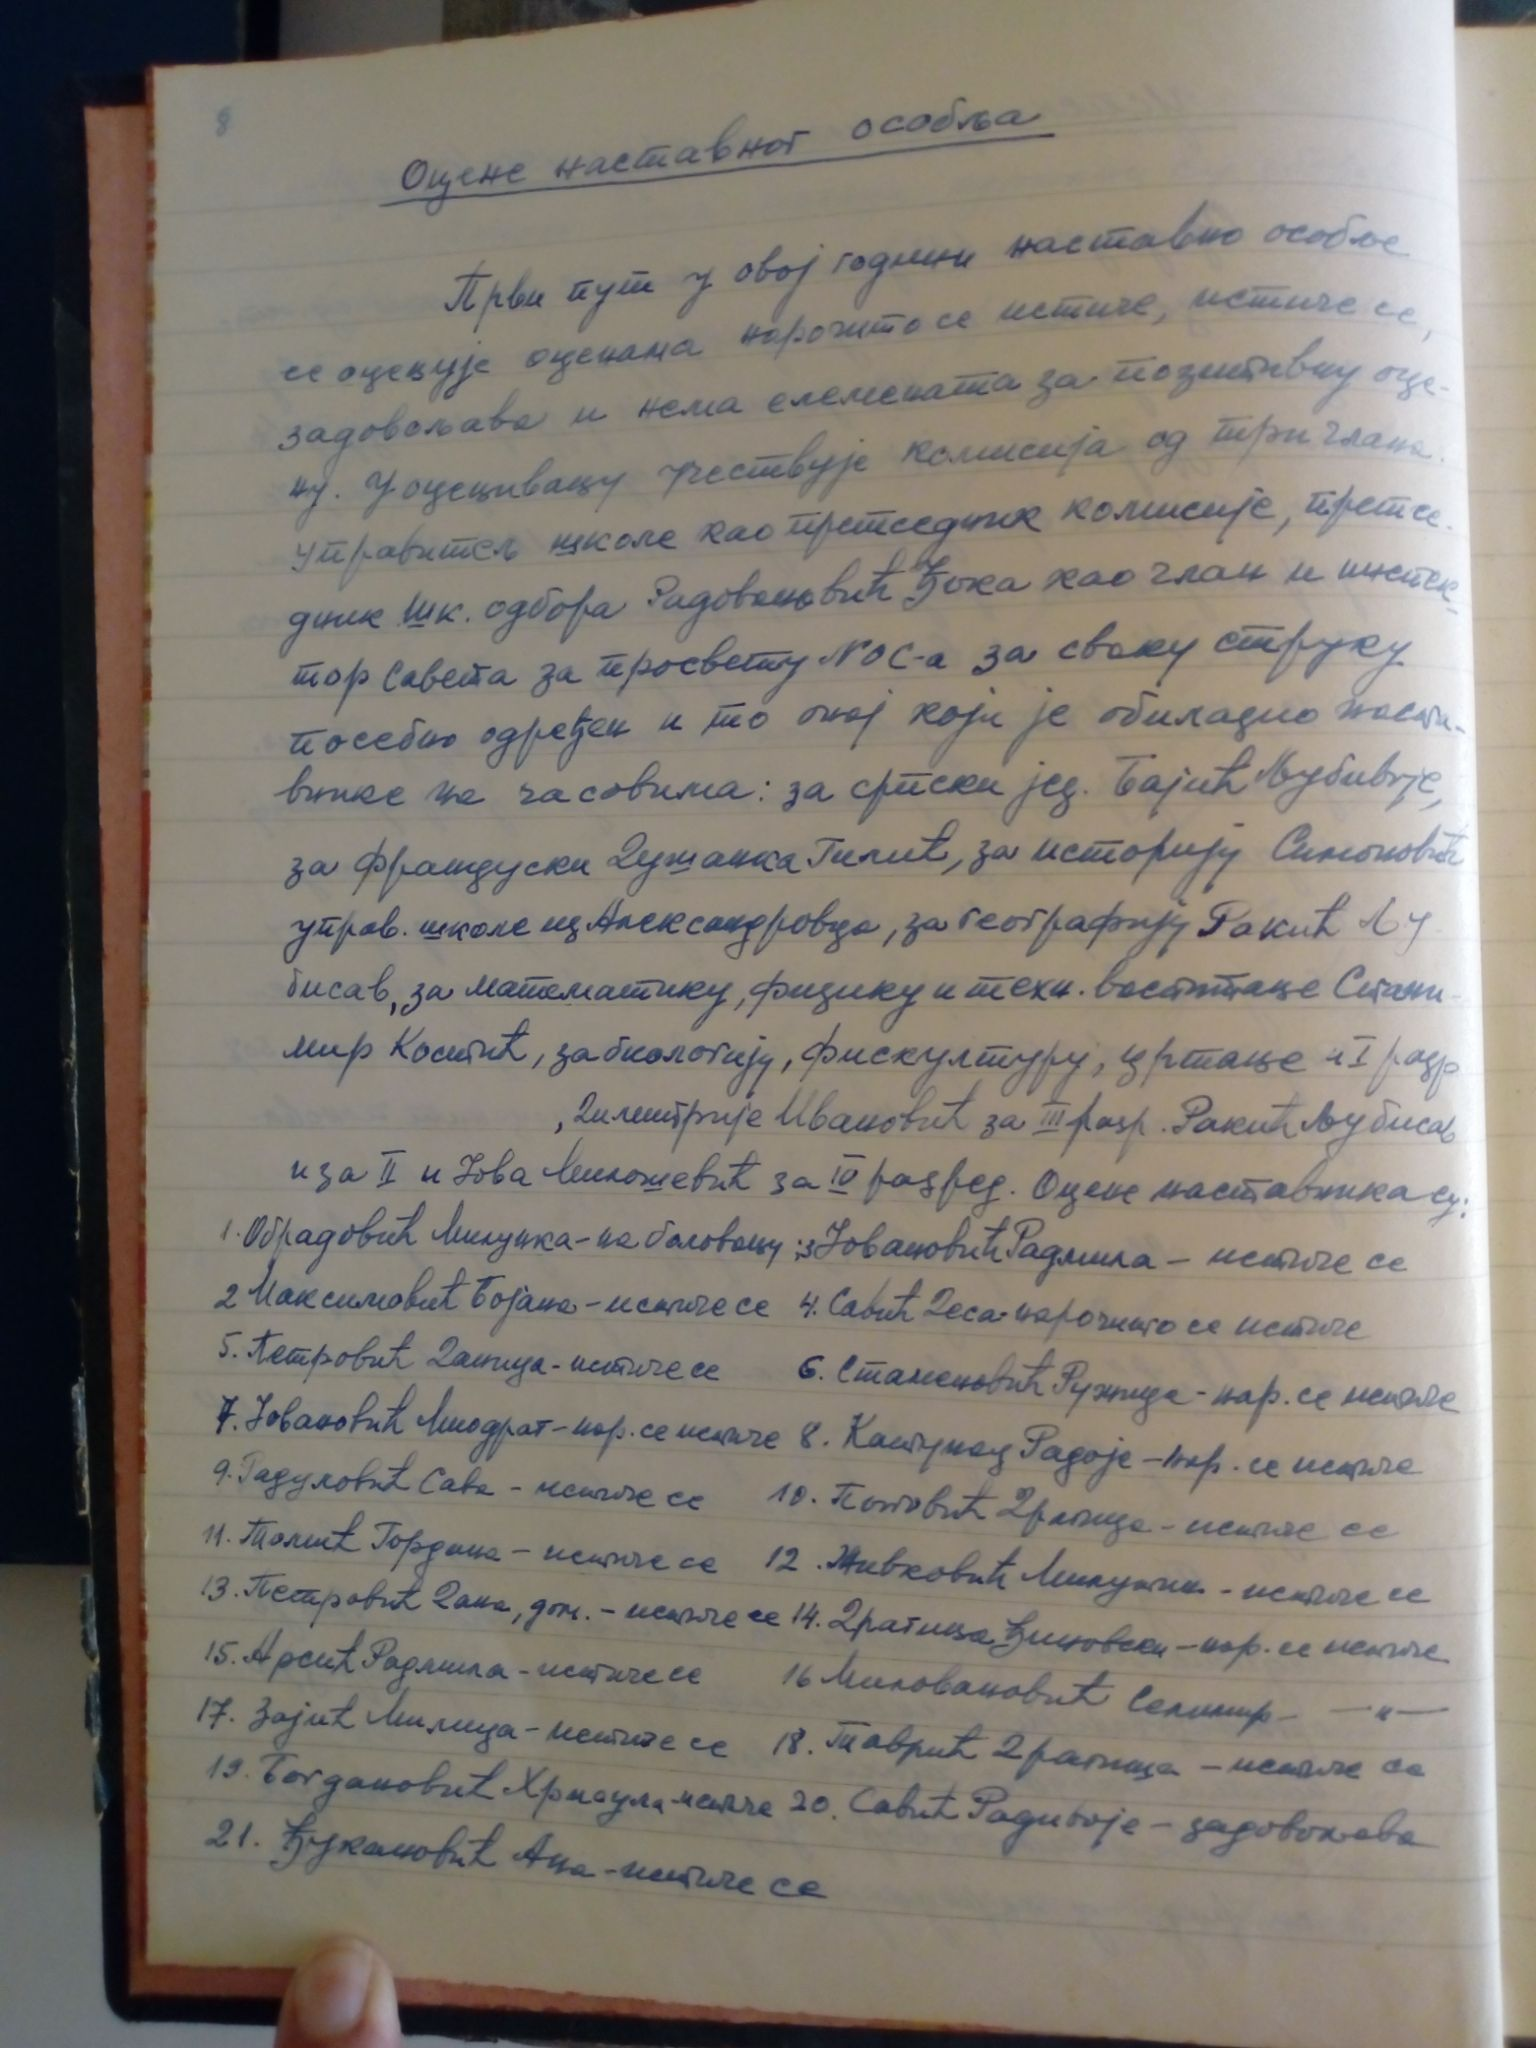 8
Оцене наставног особља
Први пут у овој години наставно особље
се оцењује оценама нарочито се истиче, истиче се,
задовољава и нема елемената за позитивну оце-
ну. У оцењивању учествује комисија од три члана.
Управитељ школе као претседник комисије, претсе-
дник шк. одбора Радовановић Ђока као члан и инспек-
тор Савета за просвету NOC-а за сваку струку
посебно одређен и то онај који је обилазио наста-
внике на часовима: за српски јез. Бајић Љубивоје,
за француски Душанка Гилић, за историју Симоновић
управ. школе из Александровца, за географију Ракић Љу-
бисав, за математику, физику и техн. васпитање Стани-
мир Костић, за биологију, фискултуру, цртање и I разр
, Димитрије Ивановић за III разр. Ракић Љубисав
и за II и Јова Милошевић за IV разред. Оцене наставника су:
1. Обрадовић Милунка - на боловању; 3 Јовановић Радмила - истиче се
2 Максимовић Бојана - истиче се 4. Савић Деса - нарочито се истиче
5. Петровић Даница - истиче се 6. Стаменовић Ружица - нар. се истиче
7. Јовановић Миодраг - нар. се истиче 8. Радоје - нар. се истиче
9. Радуловић Сава - истиче се 10. Поповић Драгица - истиче се
11. Томић Гордана - истиче се 12. Живковић Милутин - истиче се
13. Петровић Дана, дом. - истиче се 14. Драгица Ђиновски - нар. се истиче
15. Арсић Радмила - истиче се 16 Миловановић Селимир - —"—
17. Зајић Милица - истиче се 18. Таврић Драгица - истиче се
19. Богдановић Хрисула - истиче 20. Савић Радивоје - задовољава
21. Ђукановић Ана - истиче се